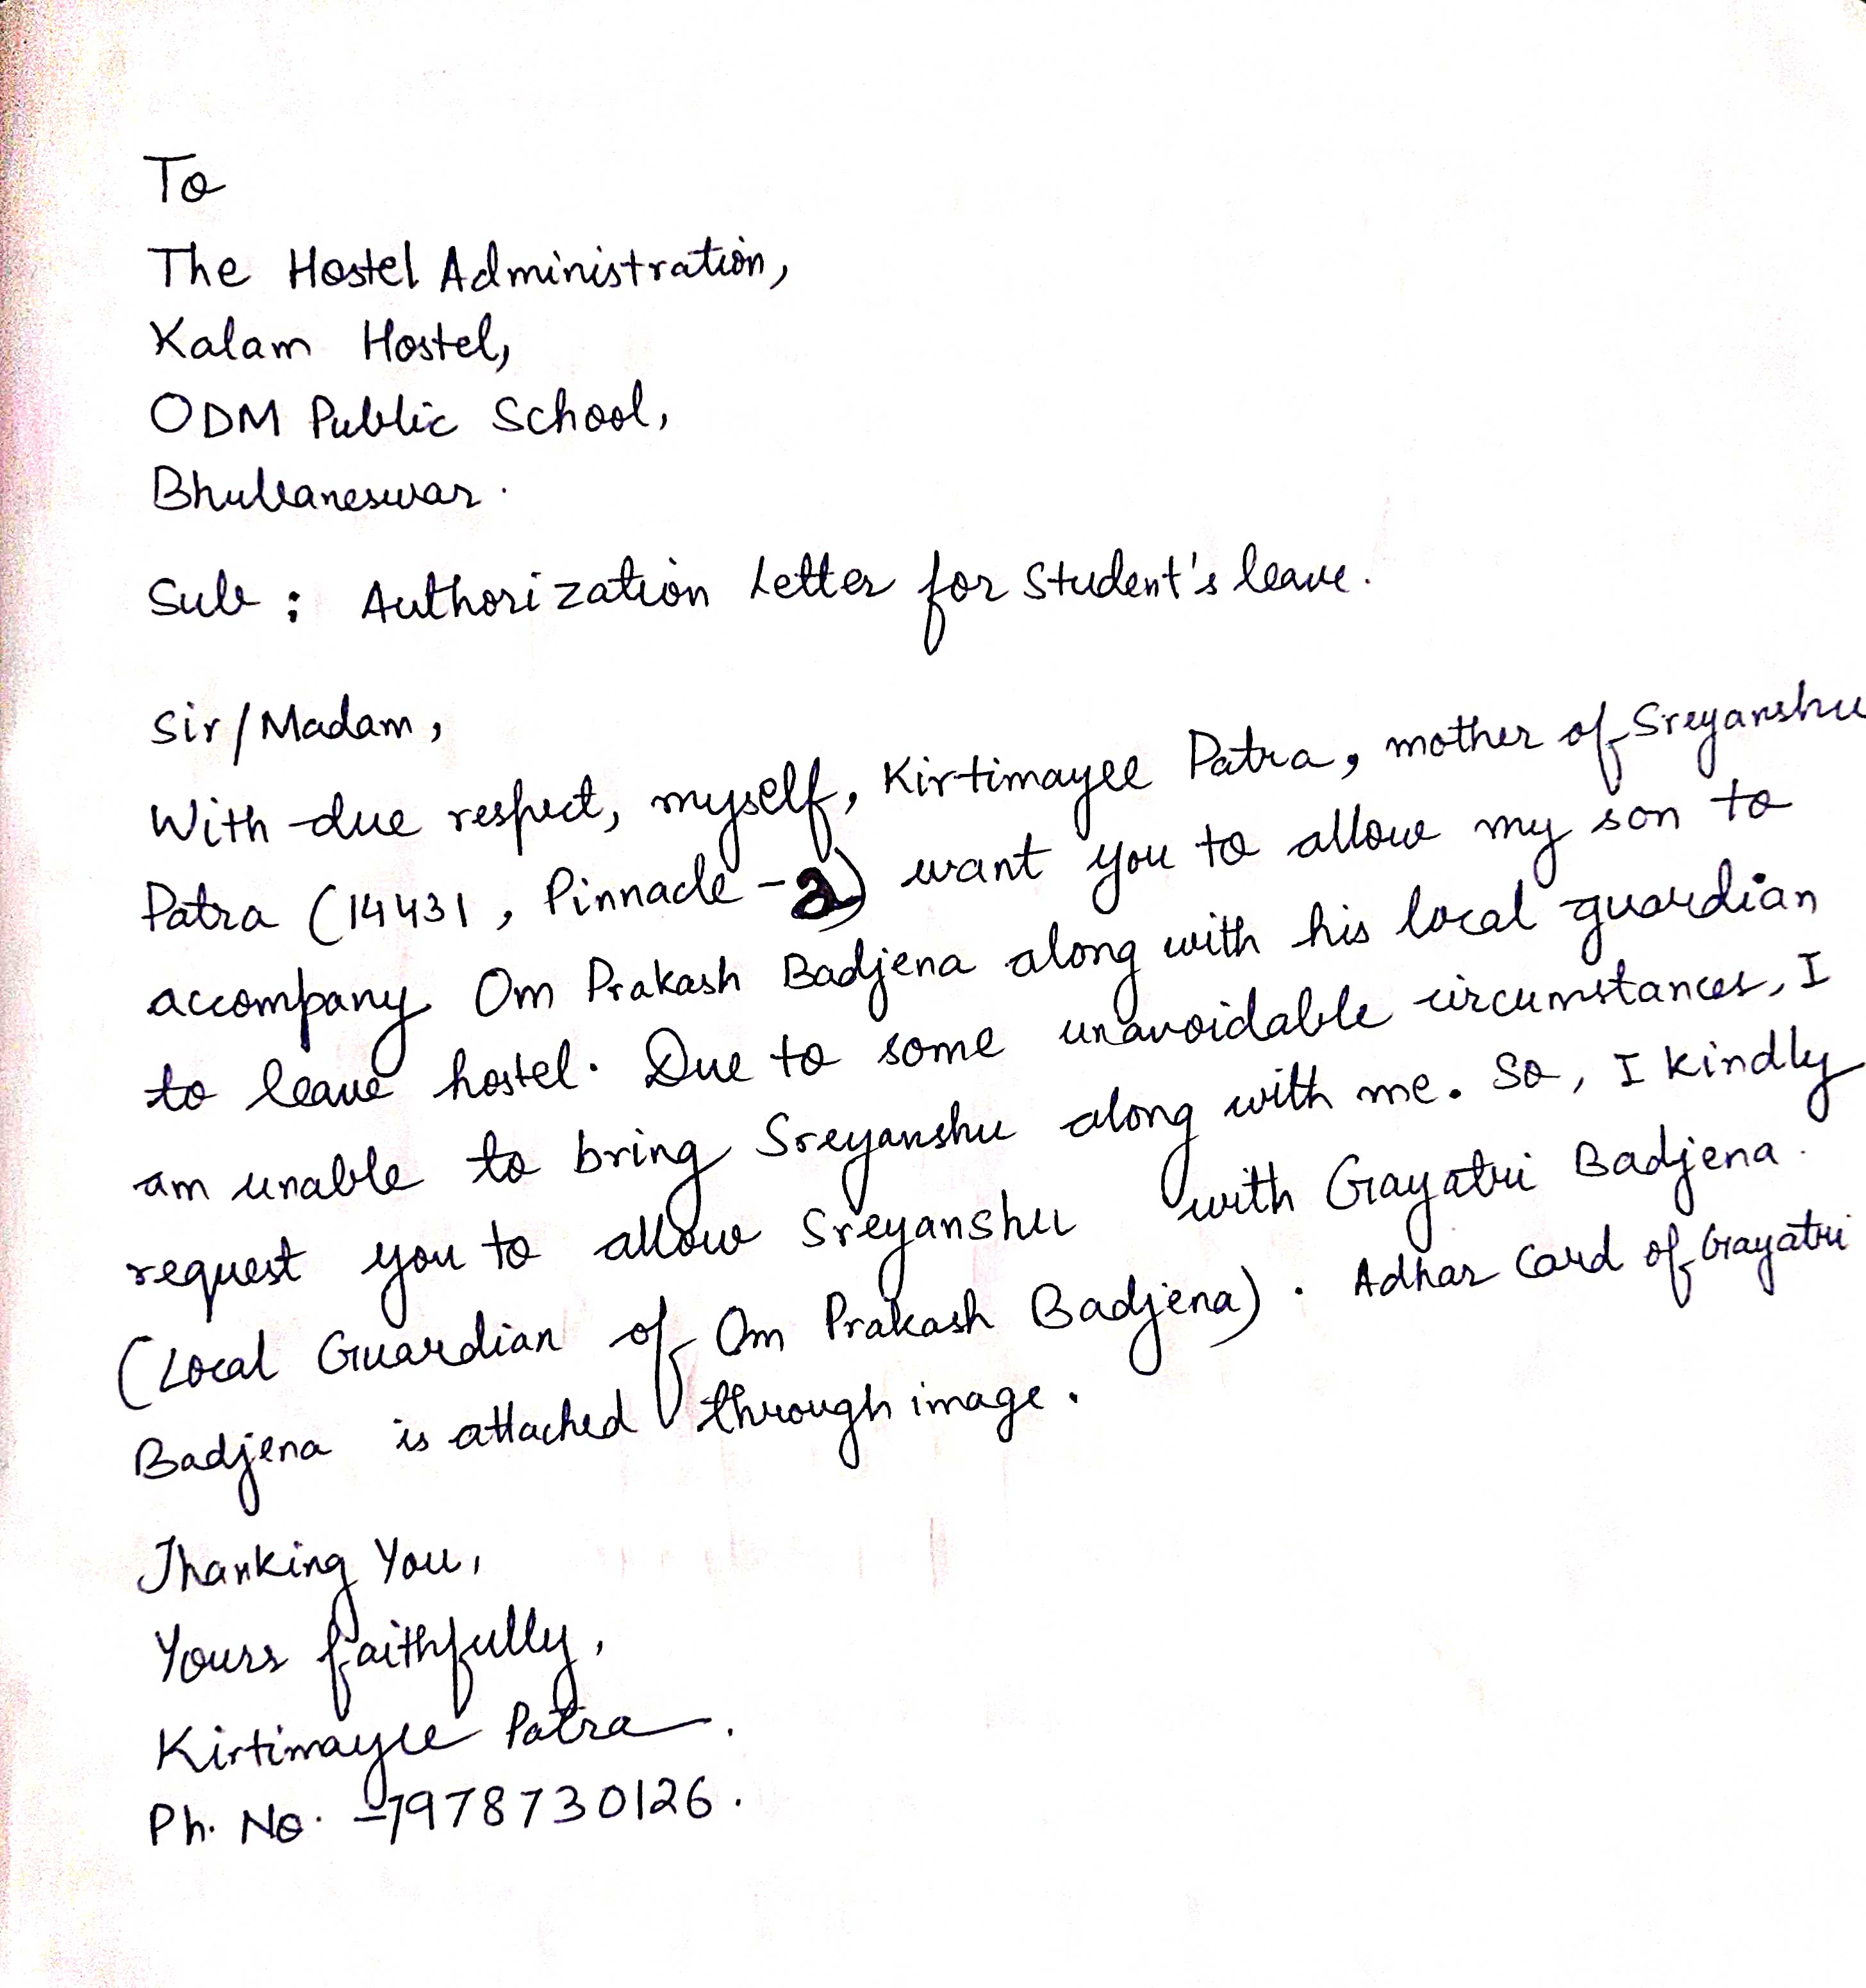 To
The Hostel Administration,
Kalam Hostel,
ODM Public School,
Bhubaneswar.
Sub : Authorization Letter for Student's leave.
Sir/Madam,
With due respect, myself, Kirtimayee Patra, mother of Sreyanshu
Patra (14431, Pinnacle - 2) want you to allow my son to
accompany Om Prakash Badjena along with his local guardian
to leave hostel. Due to some unavoidable circumstances, I
am unable to bring Sreyanshu along with me. So, I kindly
request you to allow Sreyanshu with Gayatri Badjena.
(Local Guardian of Om Prakash Badjena). Adhar Card of Gayatri
Badjena is attached through image.
Thanking You,
Yours faithfully,
Kirtimayee Patra.
Ph. No. - 7978730126.